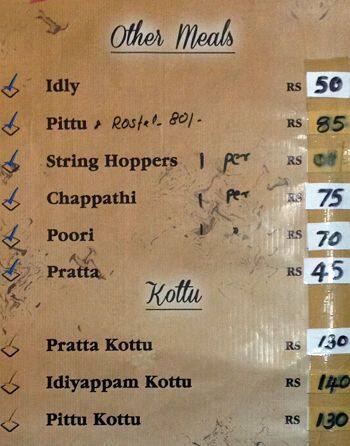 Other Meals
Idly RS 50
Pittu & Rostel- 80/- RS 85
String Hoppers 1 per RS
Chappathi 1 per RS 75
Poori 1 " RS 70
Pratta RS 45
Kottu
Pratta Kottu RS 130
Idiyappam Kottu RS 140
Pittu Kottu RS 130